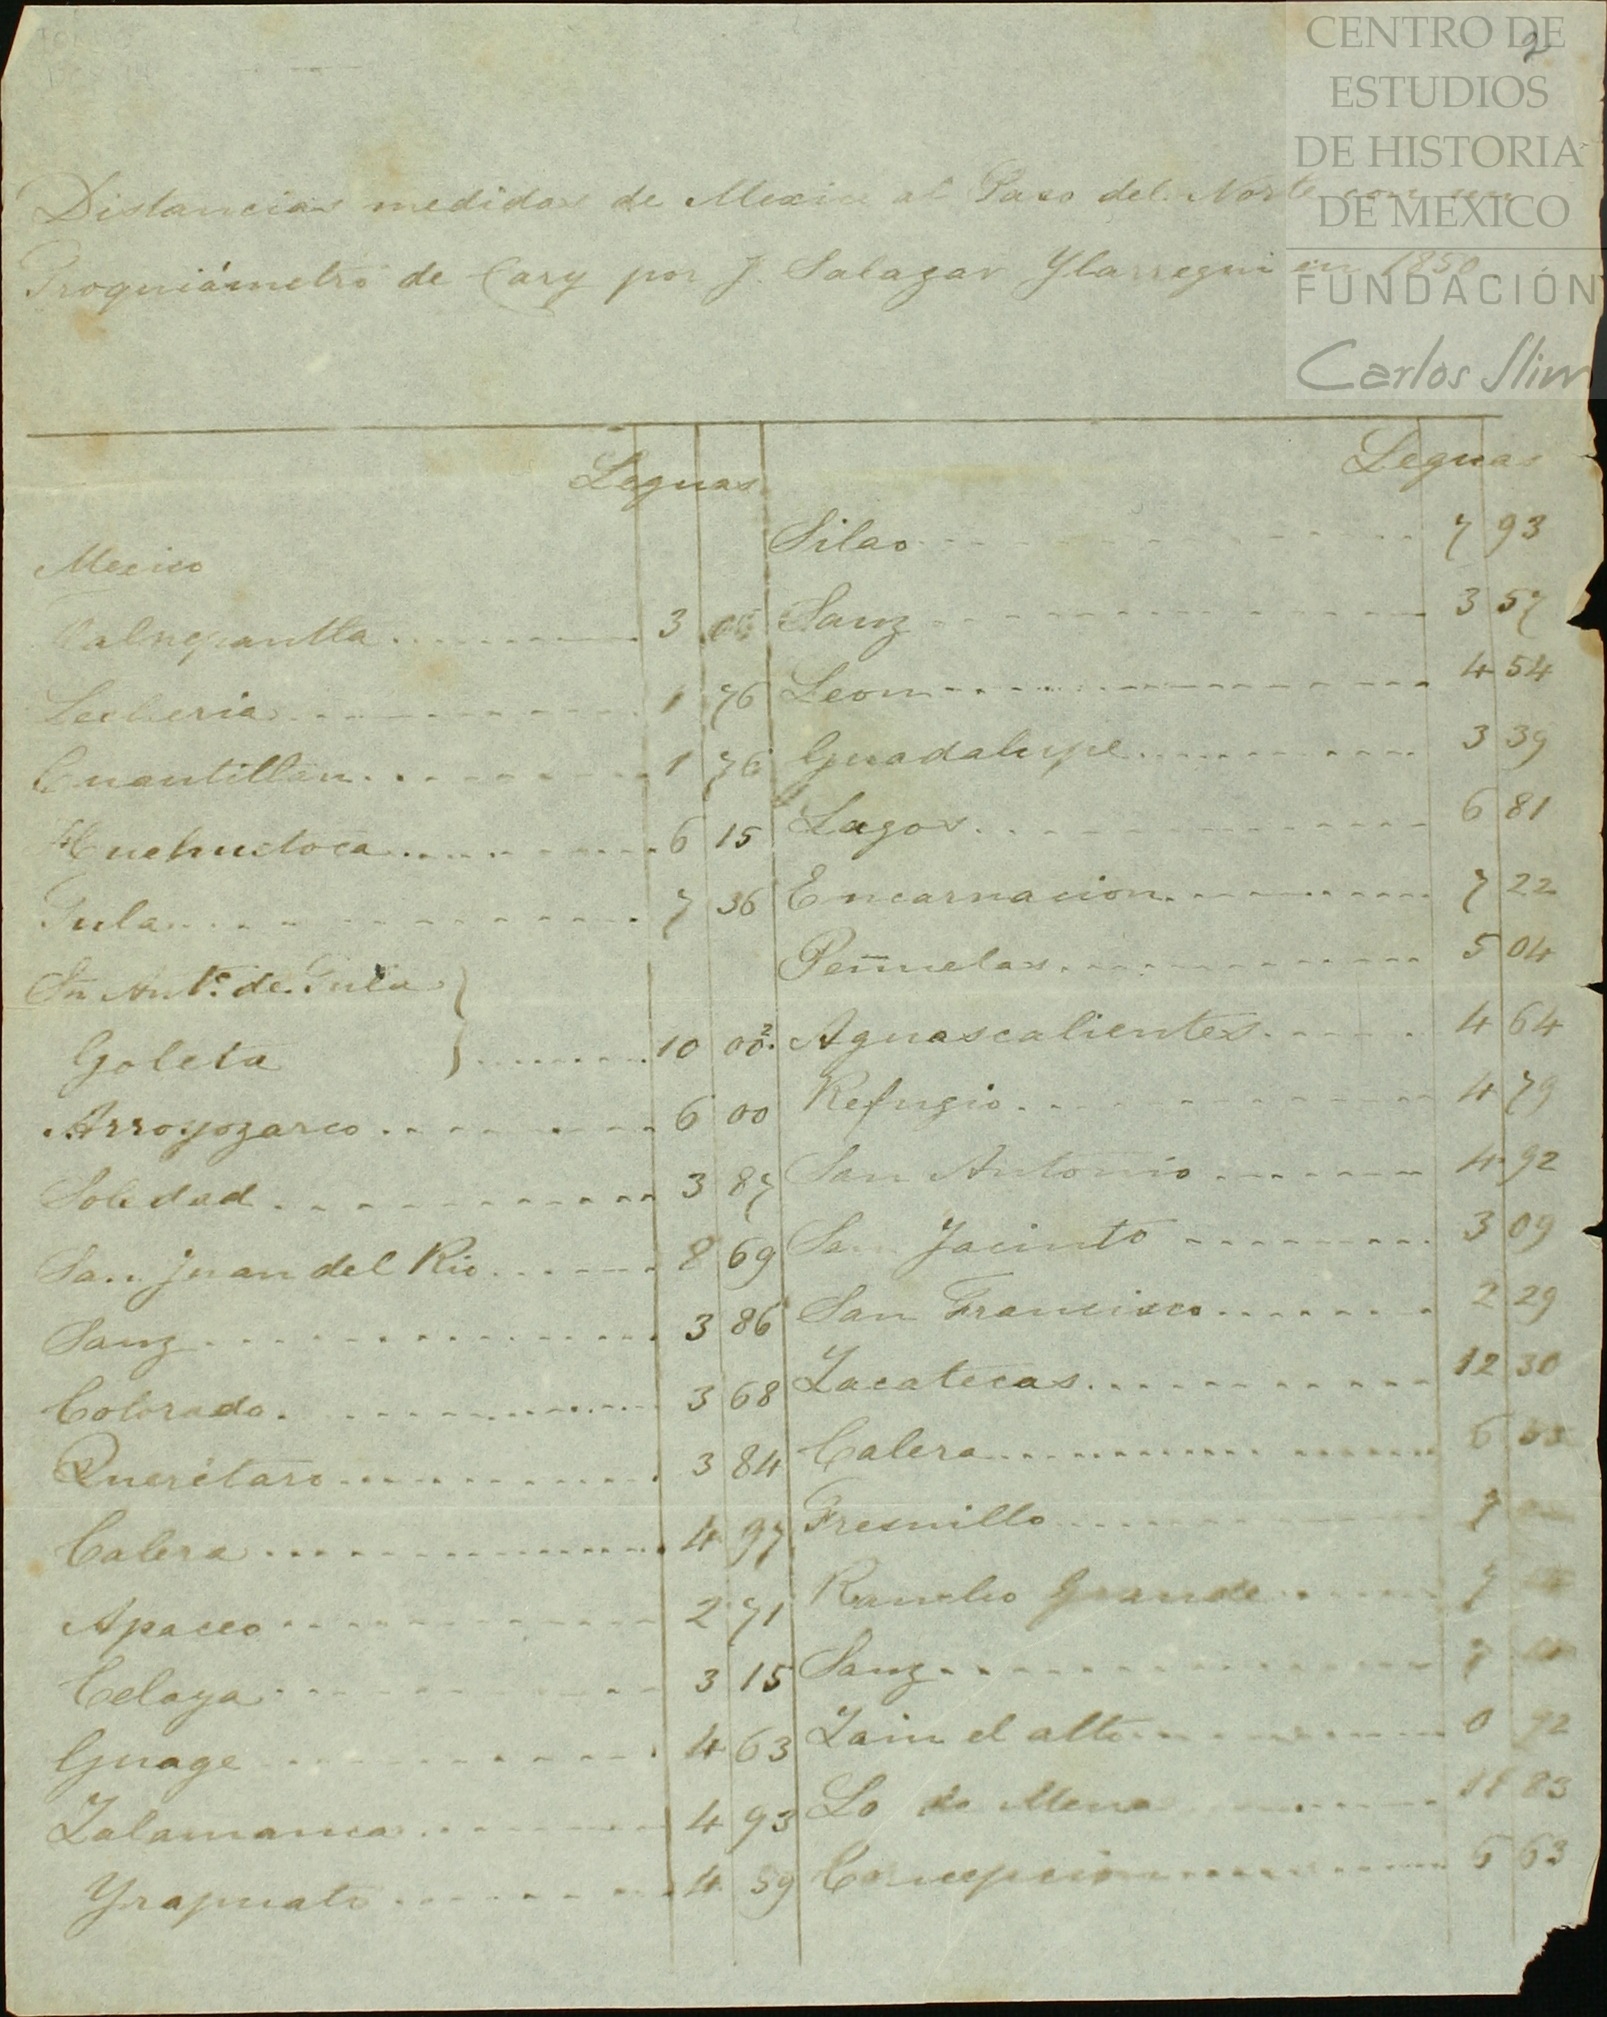 2
CENTRO DE
ESTUDIOS
DE HISTORIA
DE MEXICO
FUNDACIÓN
Carlos Slim
Distancias medidas de Mexico al Paso del Norte con un
Proquiámetro de Cary por J. Salazar Ylarregui en 1850
Leguas
Mexico
Talnepantla 3
Lecheria 1 76
Cuautitlan 1 76
Huehuetoca 6 15
Tula 7 36
Sn Anto. de Tula
Goleta 10 00?
Arroyozarco 6 00
Soledad 3 87
San Juan del Rio 8 69
Sanz 3 86
Colorado 3 68
Querétaro 3 84
Calera 4 97
Apaceo 2 71
Celaya 3 15
Guage 4 63
Zalamanca 4 93
Yrapuato 4 59
Leguas
Silao 7 93
Sanz 3 57
Leon 4 54
Guadalupe 3 39
Lagos 6 81
Encarnacion 7 22
Peñuelas 5 04
Aguascalientes 4 64
Refugio 4 79
San Antonio 4 92
San Jacinto 3 09
San Francisco 2 29
Zacatecas 12 30
Calera 6
Fresnillo
Rancho Grande 7
Sanz
Zain el alto 0 92
Lo de Mena 83
Concepcion 6 63